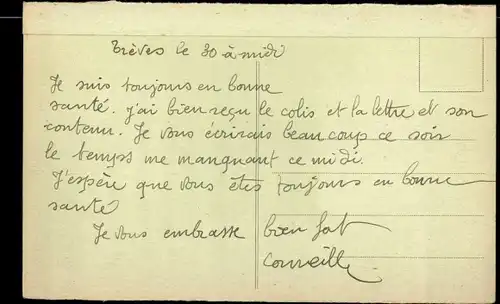 Trèves le 30 à midi
Je suis toujours en bonne
santé. j'ai bien reçu le colis et la lettre et son
contenu. Je vous écrirais beaucoup ce soir
le temps me manquant ce midi.
J'espère que vous êtes toujours en bonne
santé
Je vous embrasse bien fort
Corneille